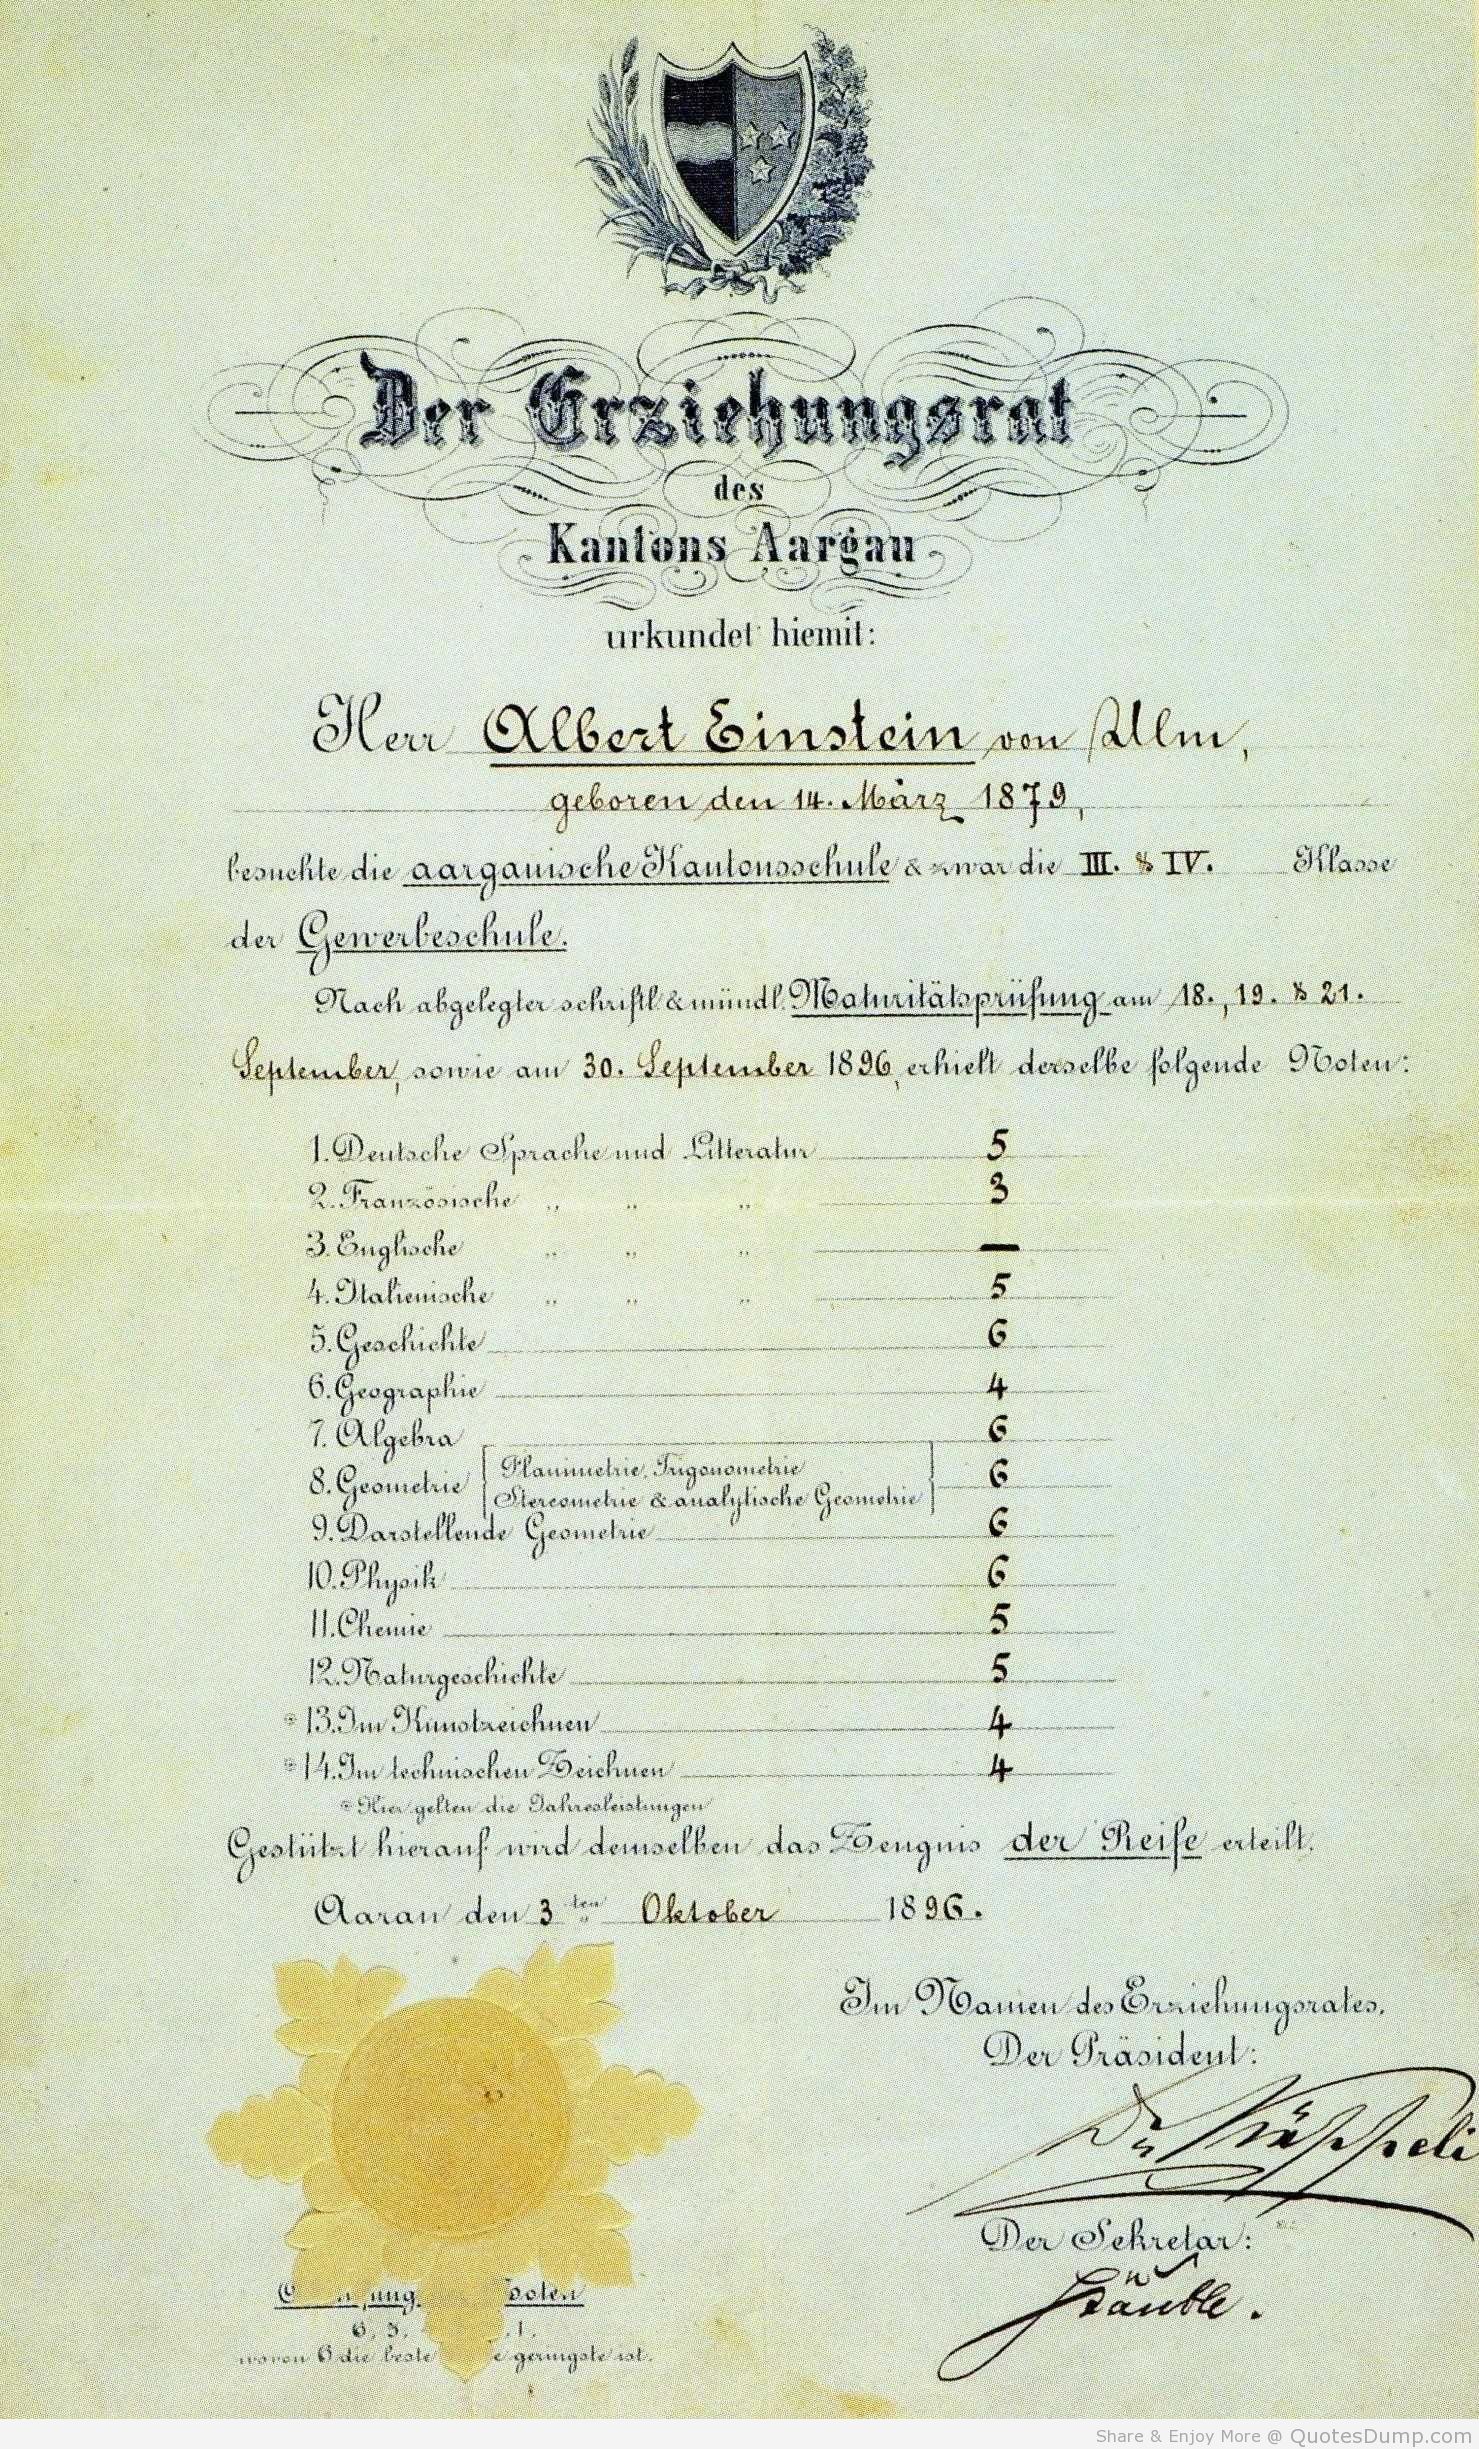 Der Erziehungsrat
des
Kantons Aargau
urkundet hiemit:
Herr Albert Einstein von Ulm,
geboren den 14. März 1879,
besuchte die aargauische Kantonsschule & zwar die III. & IV. Klasse
der Gewerbeschule.
Nach abgelegter schriftl. & mündl. Maturitätsprüfung am 18., 19. & 21.
September, sowie am 30. September 1896, erhielt derselbe folgende Noten:
1. Deutsche Sprache und Litteratur 5
2. Französische " " " 3
3. Englische " " " —
4. Italienische " " " 5
5. Geschichte 6
6. Geographie 4
7. Algebra 6
8. Geometrie { Planimetrie, Trigonometrie
Stereometrie & analytische Geometrie } 6
9. Darstellende Geometrie 6
10. Physik 6
11. Chemie 5
12. Naturgeschichte 5
* 13. Im Kunstzeichnen 4
* 14. Im technischen Zeichnen 4
* Hier gelten die Jahresleistungen
Gestützt hierauf wird demselben das Zeugnis der Reife erteilt.
Aarau den 3ten Oktober 1896.
Im Namen des Erziehungsrates,
Der Präsident:
Dr Käppeli
Der Sekretär:
Stäuble.
6, 5, 1.
wovon 6 die beste geringste ist.
Share & Enjoy More @ QuotesDump.com